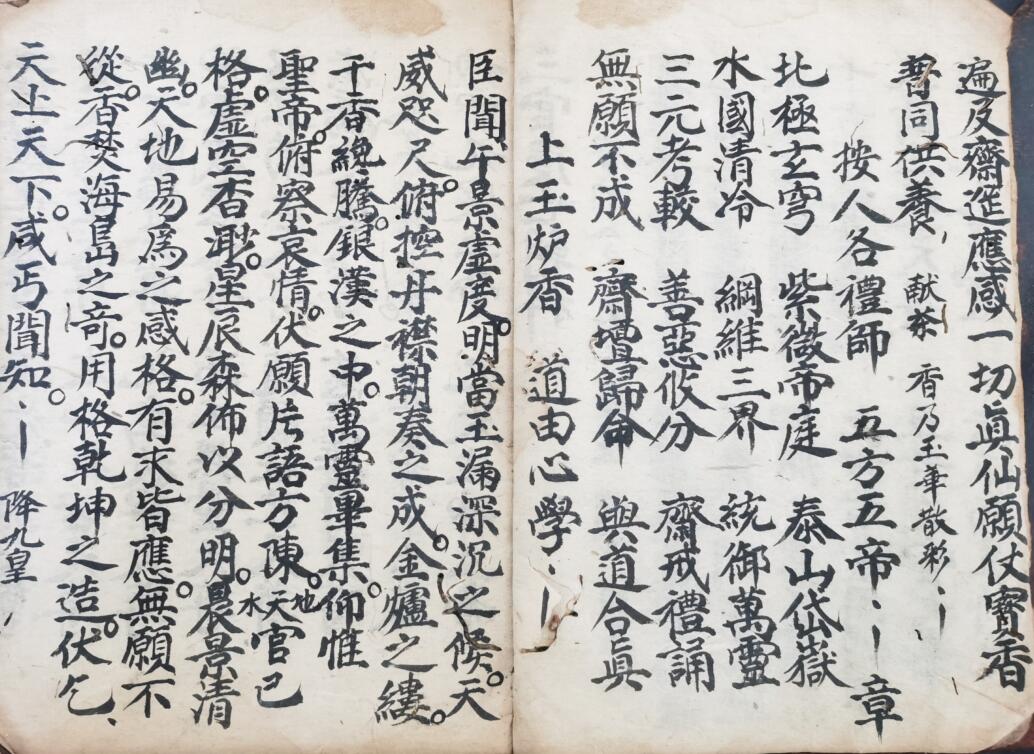 遍及齋筵應感一切眞仙願仗寳香
普同供養 献茶 香乃玉華散彩
按人各禮師 五方五帝 章
北極玄穹 紫微帝庭 泰山岱嶽
水國清冷 綱維三界 統御萬靈
三元考較 善惡攸分 齋戒禮誦
無願不成 齋壇歸命 與道合眞
上玉炉香 道由心學
臣聞午景虚度。明當玉漏深沉之候。天
威咫尺。俯控丹襟朝奏之成。金爐之縷。
千香纔騰。銀漢之中。萬靈畢集。仰惟
聖帝。俯察哀情。伏願片語方陳。天地水官已
格。虚空杳渺。星辰森佈以分明。晨景清
幽。天地易爲之感格。有求皆應。無願不
從。香焚海島之竒。用格乾坤之造。伏乞
天上天下。咸丐聞知。 降九皇